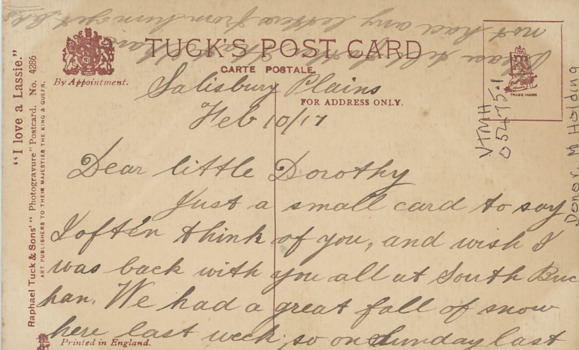 not had any letters from him yet
Dear
TUCK'S POST CARD
CARTE POSTALE.
By Appointment.
FOR ADDRESS ONLY.
Salisbury Plains
Feb 10/17
Dear little Dorothy
Just a small card to say
I often think of you, and wish I
was back with you all at South Buc
han. We had a great fall of snow
here last week, so on Sunday last
"I love a Lassie."
Raphael Tuck & Sons' "Photogravure" Postcard. No. 4286
ART PUBLISHERS TO THEIR MAJESTIES THE KING & QUEEN.
Printed in England.
VTMH
05475.1
Donor M Holding